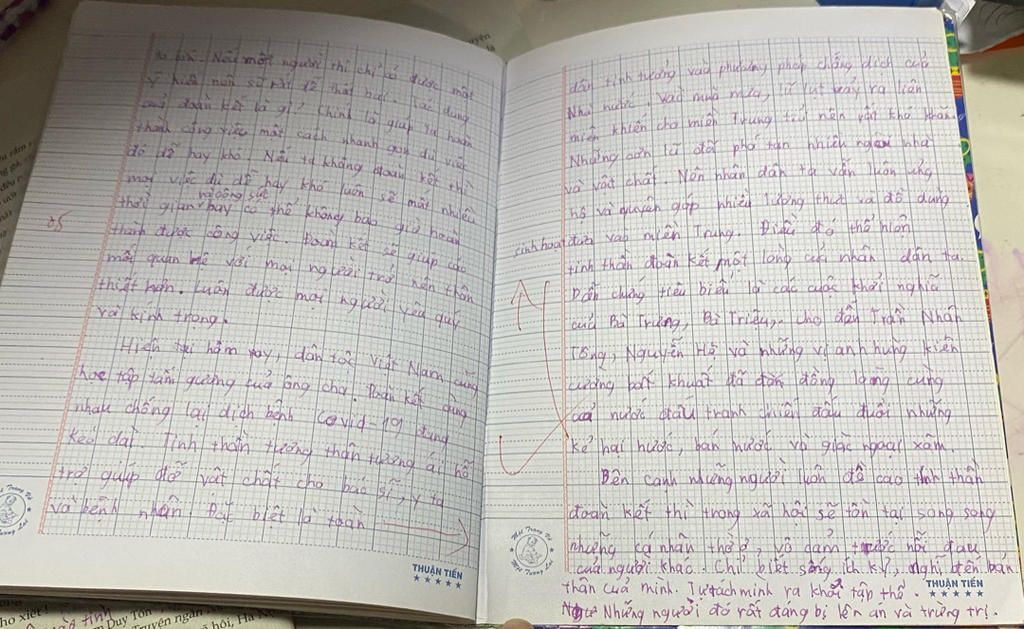 bị. Nếu một người thì chỉ có được một
ý kiến nên sẽ rất dễ thất bại. Tác dụng
của đoàn kết là gì? Chính là giúp ta hoàn
thành công việc một cách nhanh gọn dù việc
đó dễ hay khó. Nếu ta không đoàn kết thì
mọi việc dù dễ hay khó luôn sẽ mất nhiều
và công sức
thời gian hay có thể không bao giờ hoàn
thành được công việc. Đoàn kết sẽ giúp cho
mối quan hệ với mọi người trở nên thân
thiết hơn. Luôn được mọi người yêu quý
và kính trọng.
Hiện tại hôm nay, dân tộc Việt Nam cũng
học tập tấm gương của ông cha. Đoàn kết cùng
nhau chống lại dịch bệnh Covid-19 đang
kéo dài. Tinh thần tương thân tương ái hỗ
trợ giúp đỡ vật chất cho bác sĩ, y tá
và bệnh nhân. Đặc biệt là toàn
THUẬN TIẾN
dân tin tưởng vào phương pháp chống dịch của
Nhà nước. Vào mùa mưa, lũ lụt xảy ra liên
miên khiến cho miền Trung trở nên rất khó khăn.
Những cơn lũ đã phá tan nhiều ngôi nhà
và vật chất. Nên nhân dân ta vẫn luôn ủng
hộ và quyên góp nhiều lương thực và đồ dùng
sinh hoạt đưa vào miền Trung. Điều đó thể hiện
tinh thần đoàn kết một lòng của nhân dân ta.
Dẫn chứng tiêu biểu là các cuộc khởi nghĩa
của Bà Trưng, Bà Triệu,.. cho đến Trần Nhân
Tông, Nguyễn Huệ và những vị anh hùng kiên
cường bất khuất đã đồng lòng cùng
cả nước đấu tranh chiến đấu đuổi những
kẻ hại nước, bán nước và giặc ngoại xâm.
Bên cạnh những người luôn đề cao tinh thần
đoàn kết thì trong xã hội sẽ tồn tại song song
những cá nhân thờ ơ, vô cảm trước nỗi đau
của người khác. Chỉ biết sống ích kỷ, nghĩ đến bản
thân của mình. Tự tách mình ra khỏi tập thể.
THUẬN TIẾN
Những người đó rất đáng bị lên án và trừng trị.